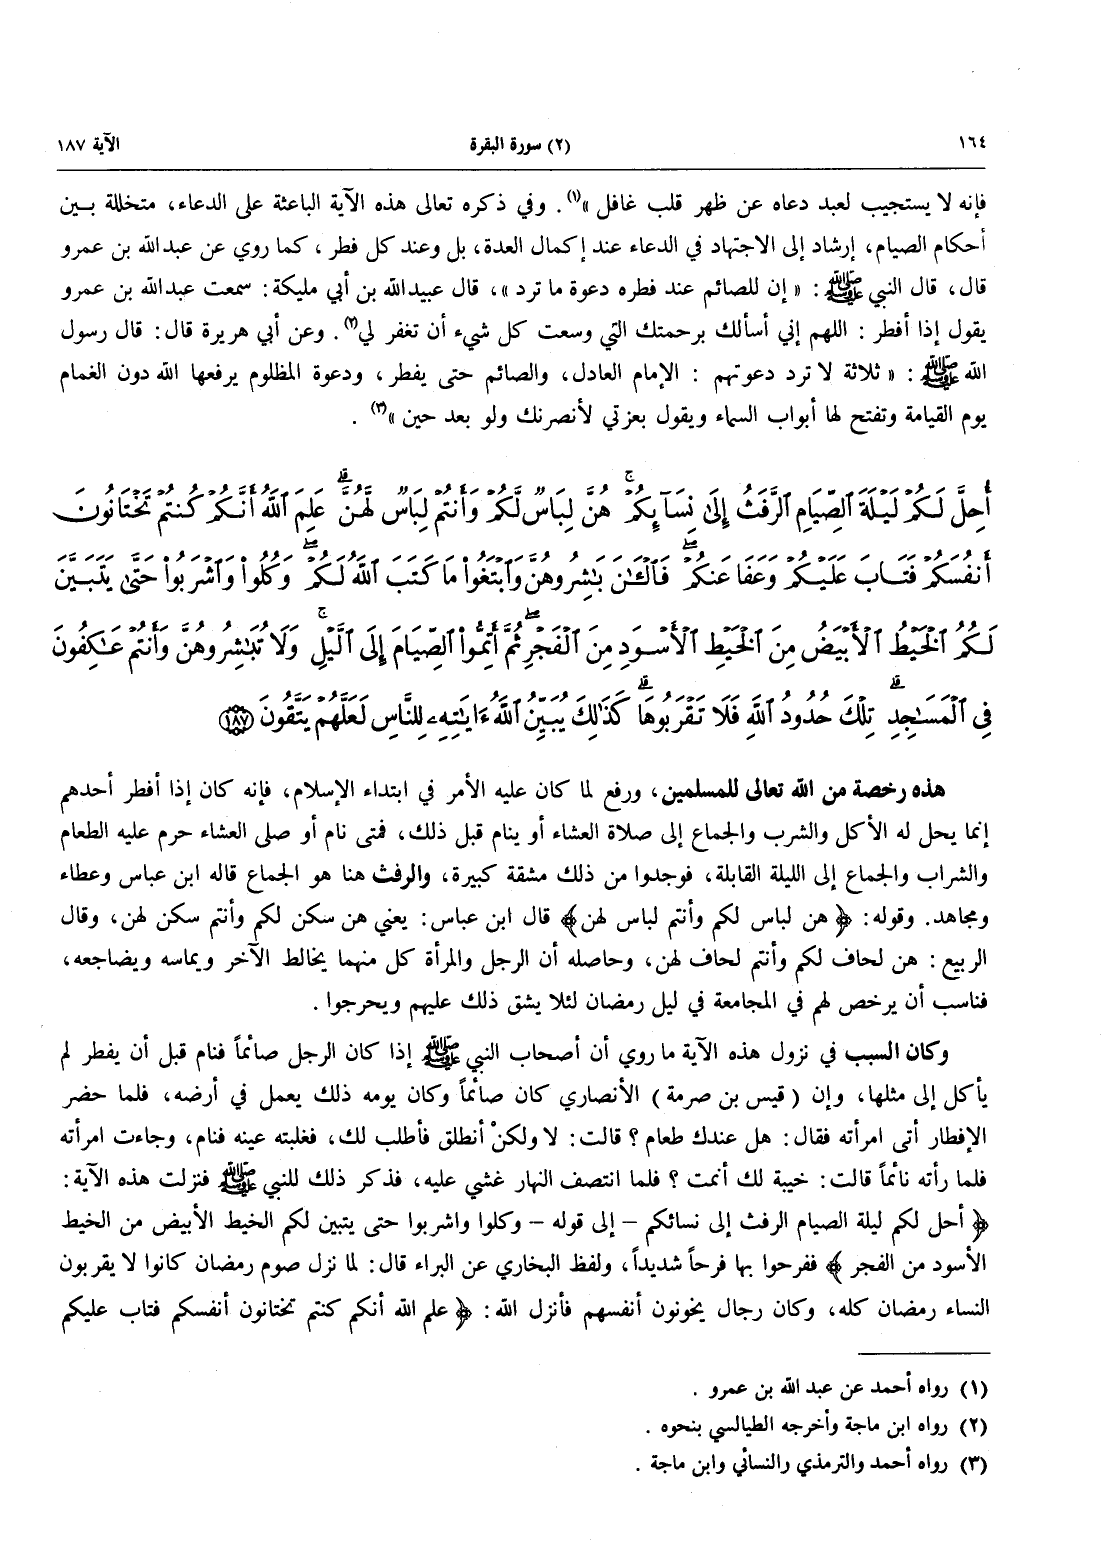 ١٦٤ (٢) سورة البقرة الآية ١٨٧
فإنه لا يستجيب لعبد دعاه عن ظهر قلب غافل »(١). وفي ذكره تعالى هذه الآية الباعثة على الدعاء، متخللة بـين
أحكام الصيام، إرشاد إلى الاجتهاد في الدعاء عند إكمال العدة، بل وعند كل فطر، كما روي عن عبدالله بن عمرو
قال، قال النبي ﷺ: « إن للصائم عند فطره دعوة ما ترد »، قال عبيدالله بن أبي مليكة: سمعت عبدالله بن عمرو
يقول إذا أفطر : اللهم إني أسألك برحمتك التي وسعت كل شيء أن تغفر لي(٢). وعن أبي هريرة قال: قال رسول
الله ﷺ: « ثلاثة لا ترد دعوتهم : الإمام العادل، والصائم حتى يفطر، ودعوة المظلوم يرفعها الله دون الغمام
يوم القيامة وتفتح لها أبواب السماء ويقول بعزتي لأنصرنك ولو بعد حين »(٣) .
أُحِلَّ لَكُمْ لَيْلَةَ ٱلصِّيَامِ ٱلرَّفَثُ إِلَىٰ نِسَآئِكُمْ ۚ هُنَّ لِبَاسٌ لَّكُمْ وَأَنتُمْ لِبَاسٌ لَّهُنَّ ۗ عَلِمَ ٱللَّهُ أَنَّكُمْ كُنتُمْ تَخْتَانُونَ
أَنفُسَكُمْ فَتَابَ عَلَيْكُمْ وَعَفَا عَنكُمْ ۖ فَٱلْـَٰٔنَ بَٰشِرُوهُنَّ وَٱبْتَغُوا۟ مَا كَتَبَ ٱللَّهُ لَكُمْ ۚ وَكُلُوا۟ وَٱشْرَبُوا۟ حَتَّىٰ يَتَبَيَّنَ
لَكُمُ ٱلْخَيْطُ ٱلْأَبْيَضُ مِنَ ٱلْخَيْطِ ٱلْأَسْوَدِ مِنَ ٱلْفَجْرِ ۖ ثُمَّ أَتِمُّوا۟ ٱلصِّيَامَ إِلَى ٱلَّيْلِ ۚ وَلَا تُبَٰشِرُوهُنَّ وَأَنتُمْ عَٰكِفُونَ
فِى ٱلْمَسَٰجِدِ ۗ تِلْكَ حُدُودُ ٱللَّهِ فَلَا تَقْرَبُوهَا ۗ كَذَٰلِكَ يُبَيِّنُ ٱللَّهُ ءَايَٰتِهِۦ لِلنَّاسِ لَعَلَّهُمْ يَتَّقُونَ ١٨٧
هذه رخصة من الله تعالى للمسلمين، ورفع لما كان عليه الأمر في ابتداء الإسلام، فإنه كان إذا أفطر أحدهم
إنما يحل له الأكل والشرب والجماع إلى صلاة العشاء أو ينام قبل ذلك، فمتى نام أو صلى العشاء حرم عليه الطعام
والشراب والجماع إلى الليلة القابلة، فوجدوا من ذلك مشقة كبيرة، والرفث هنا هو الجماع قاله ابن عباس وعطاء
ومجاهد. وقوله: ﴿ هن لباس لكم وأنتم لباس لهن﴾ قال ابن عباس: يعني هن سكن لكم وأنتم سكن لهن، وقال
الربيع : هن لحاف لكم وأنتم لحاف لهن، وحاصله أن الرجل والمرأة كل منهما يخالط الآخر ويماسه ويضاجعه،
فناسب أن يرخص لهم في المجامعة في ليل رمضان لئلا يشق ذلك عليهم ويحرجوا .
وكان السبب في نزول هذه الآية ما روي أن أصحاب النبي ﷺ إذا كان الرجل صائماً فنام قبل أن يفطر لم
يأكل إلى مثلها، وإن ( قيس بن صرمة ) الأنصاري كان صائماً وكان يومه ذلك يعمل في أرضه، فلما حضر
الإفطار أتى امرأته فقال: هل عندك طعام ؟ قالت: لا ولكنْ أنطلق فأطلب لك، فغلبته عينه فنام، وجاءت امرأته
فلما رأته نائماً قالت: خيبة لك أنمت ؟ فلما انتصف النهار غشي عليه، فذكر ذلك للنبي ﷺ فنزلت هذه الآية:
﴿ أحل لكم ليلة الصيام الرفث إلى نسائكم – إلى قوله – وكلوا واشربوا حتى يتبين لكم الخيط الأبيض من الخيط
الأسود من الفجر ﴾ ففرحوا بها فرحاً شديداً، ولفظ البخاري عن البراء قال: لما نزل صوم رمضان كانوا لا يقربون
النساء رمضان كله، وكان رجال يخونون أنفسهم فأنزل الله: ﴿ علم الله أنكم كنتم تختانون أنفسكم فتاب عليكم
(١) رواه أحمد عن عبد الله بن عمرو .
(٢) رواه ابن ماجة وأخرجه الطيالسي بنحوه .
(٣) رواه أحمد والترمذي والنسائي وابن ماجة .